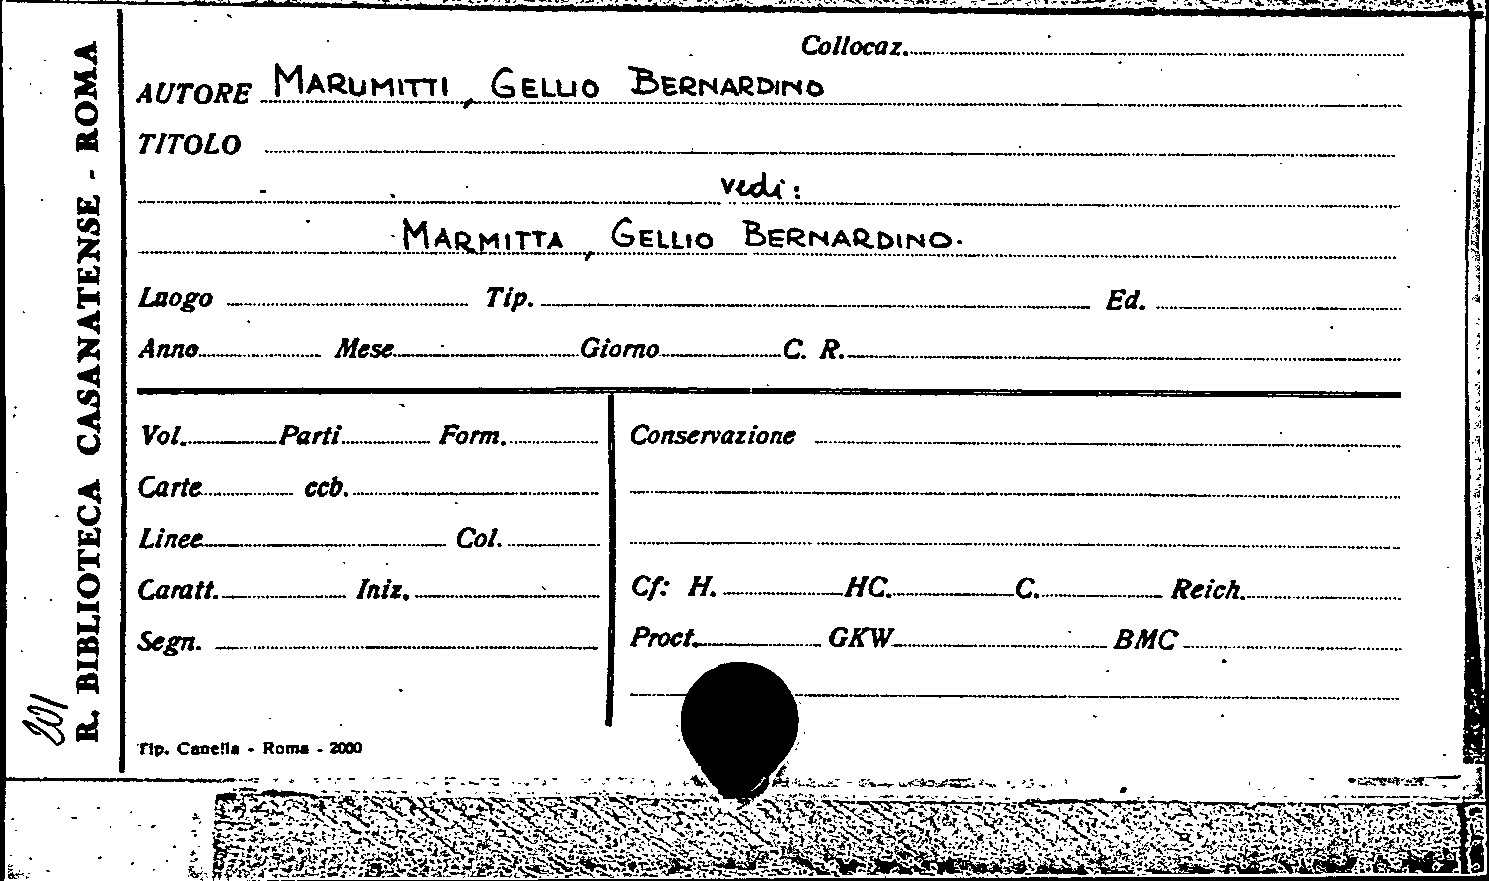 Collocaz.
AUTORE MARUMITTI, GELLIO BERNARDINO
TITOLO
vedi:
MARMITTA, GELLIO BERNARDINO.
Luogo Tip. Ed.
Anno Mese Giorno C. R.
Vol. Parti Form. Conservazione
Carte ccb.
Linee Col.
Caratt. Iniz. Cf: H. HC. C. Reich.
Segn. Proct. GKW BMC
Tip. Canella - Roma - 2000
R. BIBLIOTECA CASANATENSE - ROMA
201